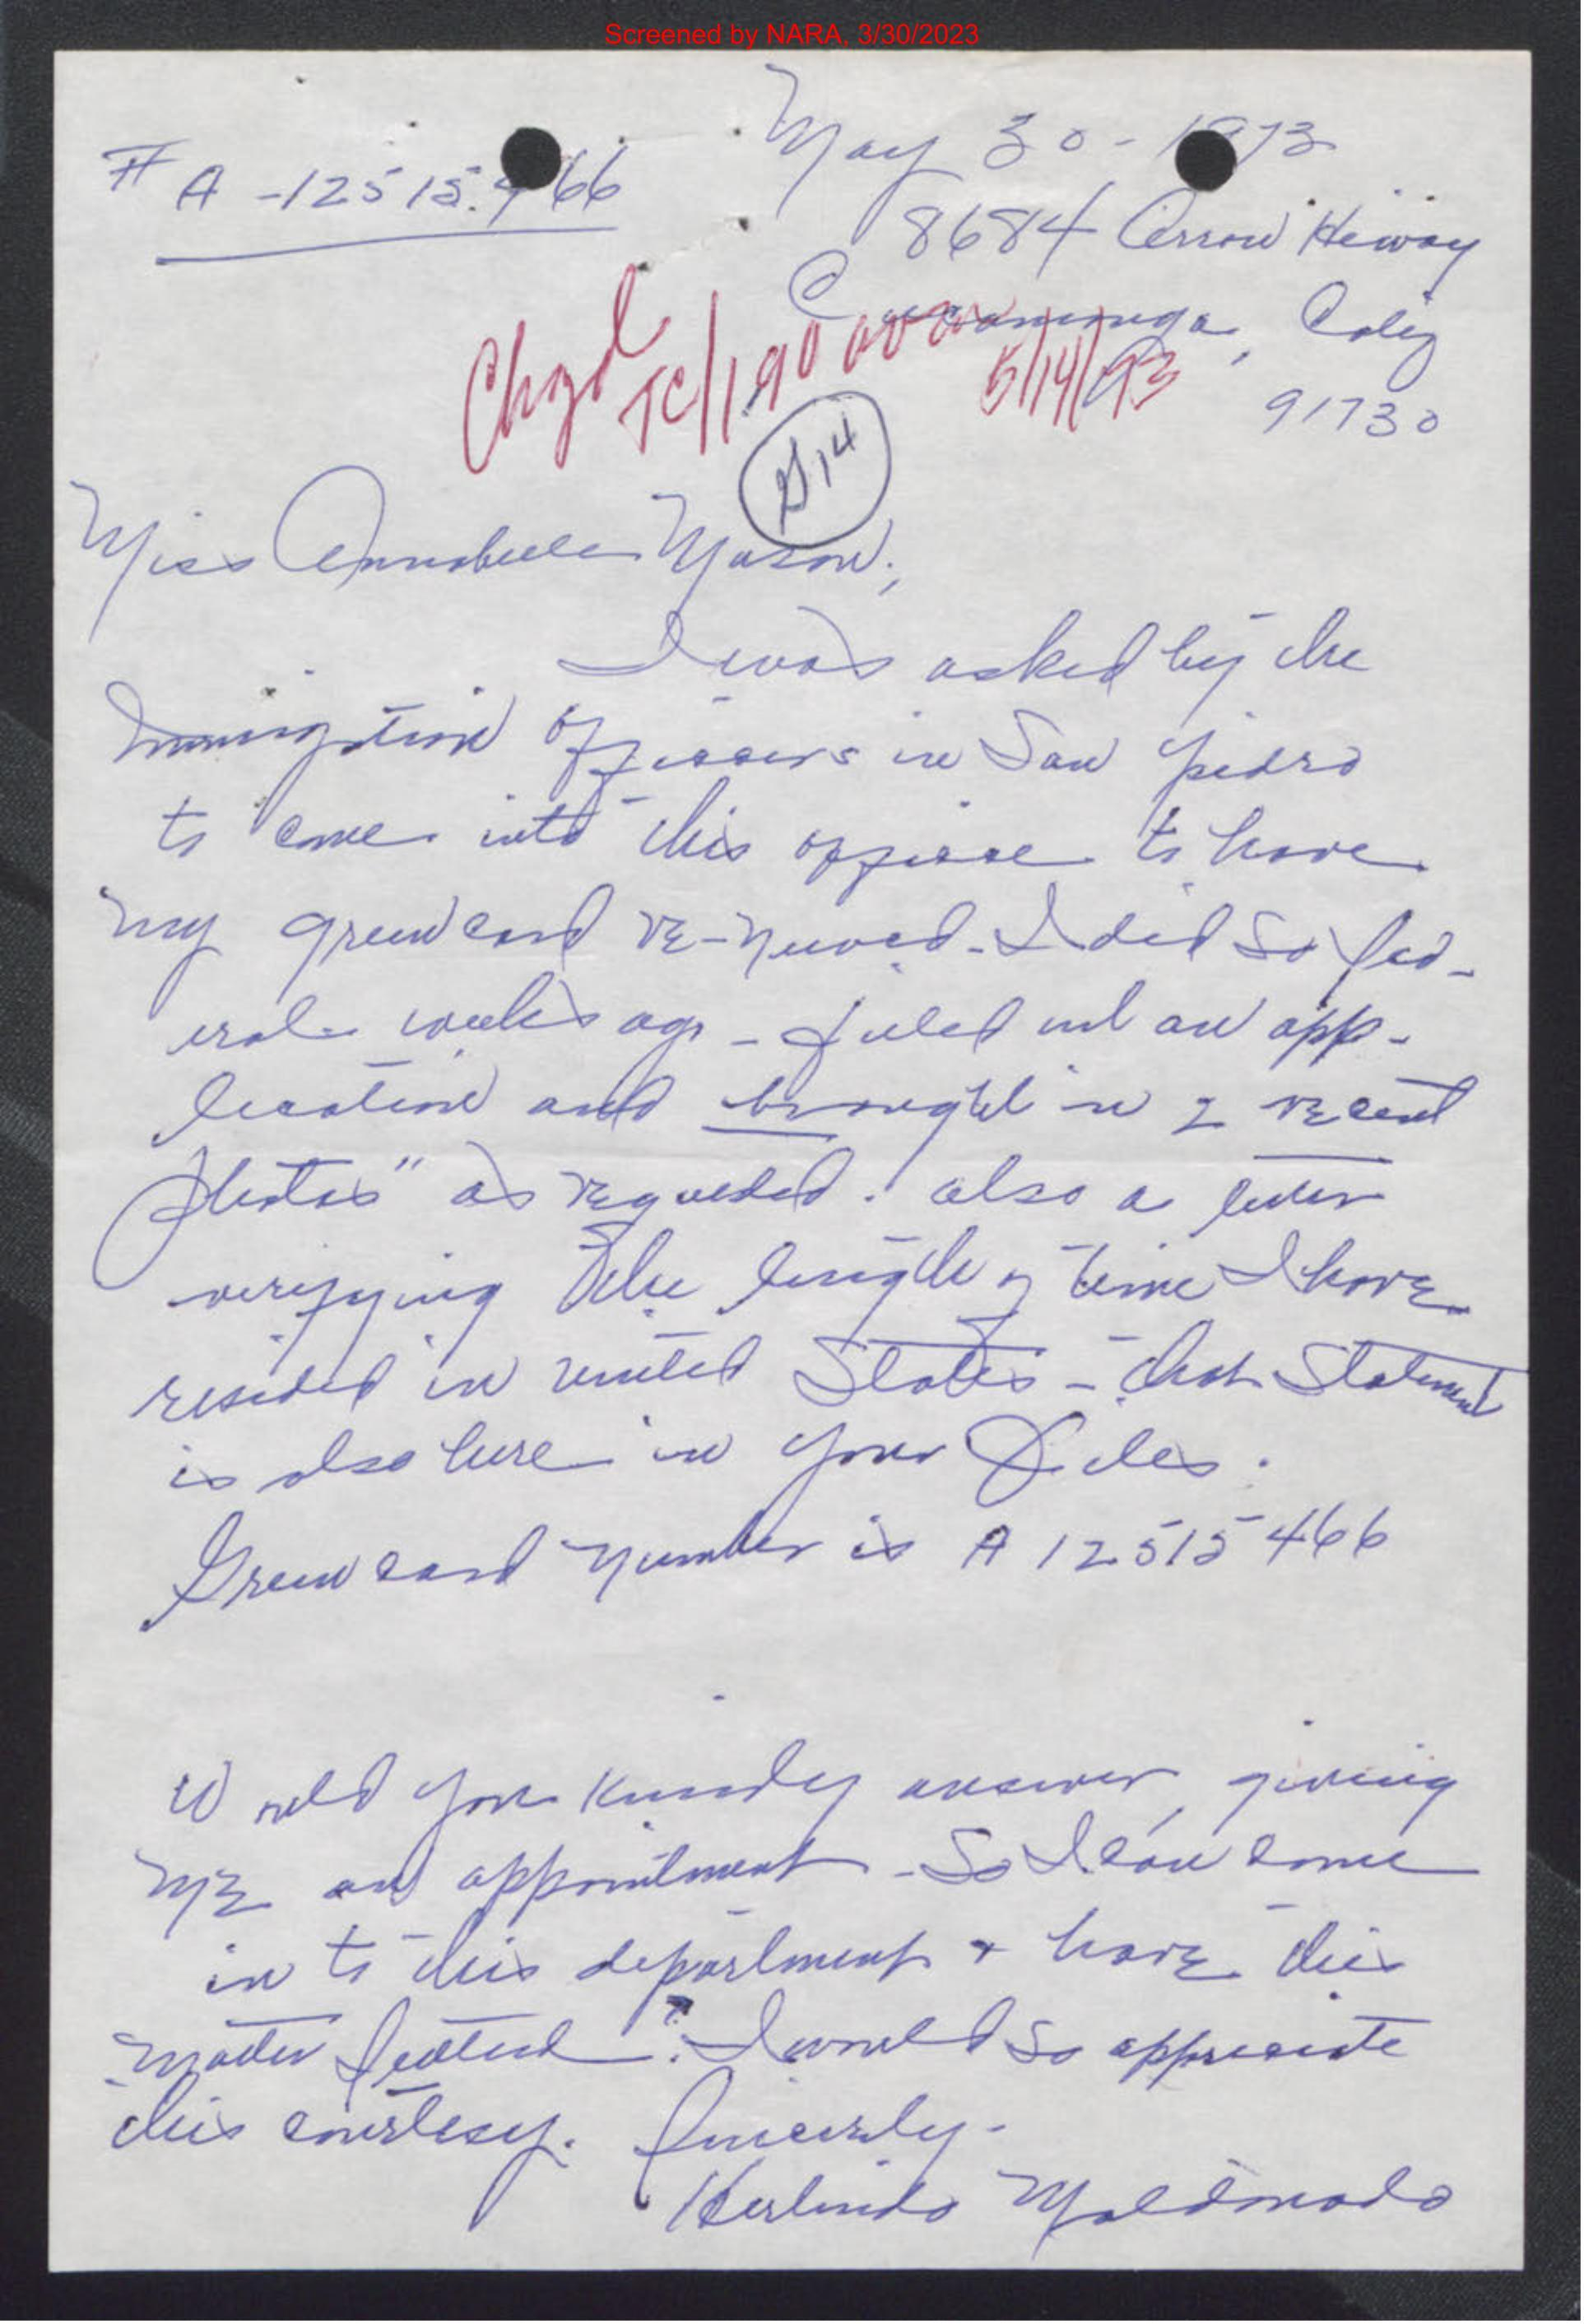 Screened by NARA, 3/30/2023
May 30 - 1973
# A -12515466
8684 Arrow Hiway
Cucamonga, Calif
91730
Chgd
TC/190
5/14/73
G14
Miss Annabelle Mason;
I was asked by the
Immigation officers in San Pedro
to come into this office to have
my green card re-newed - I did so sev-
eral weeks ago - filled out an app-
lication and brought in 2 recent
photos" as requested. also a letter
verifying the length of time I have
resided in united States - that Statement
is also here in your Files.
Green card number is A 12515466
Would you kindly answer, giving
me an appointment - So I can come
in to this department & have this
matter settled? I would so appreciate
this courtesy. Sincerely -
Herlindo Maldonado